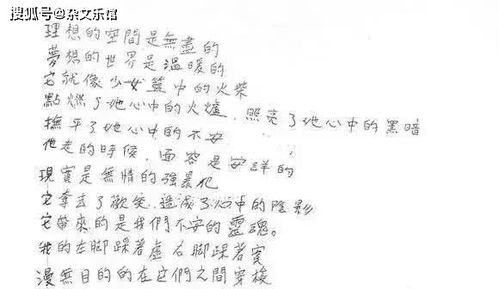 搜狐号@杂文乐馆
理想的空間是無盡的
夢想的世界是溫暖的
它就像少女籃中的火柴
點燃了她心中的火爐,照亮了她心中的黑暗
撫平了她心中的不安
他走的時候,面容是安詳的
現實是無情的強暴犯
它拿走了歡笑,造成了心中的陰影
它帶來的是我們不安的靈魂。
我的左脚踩著虛右脚踩著實
漫無目的的在它們之間穿梭